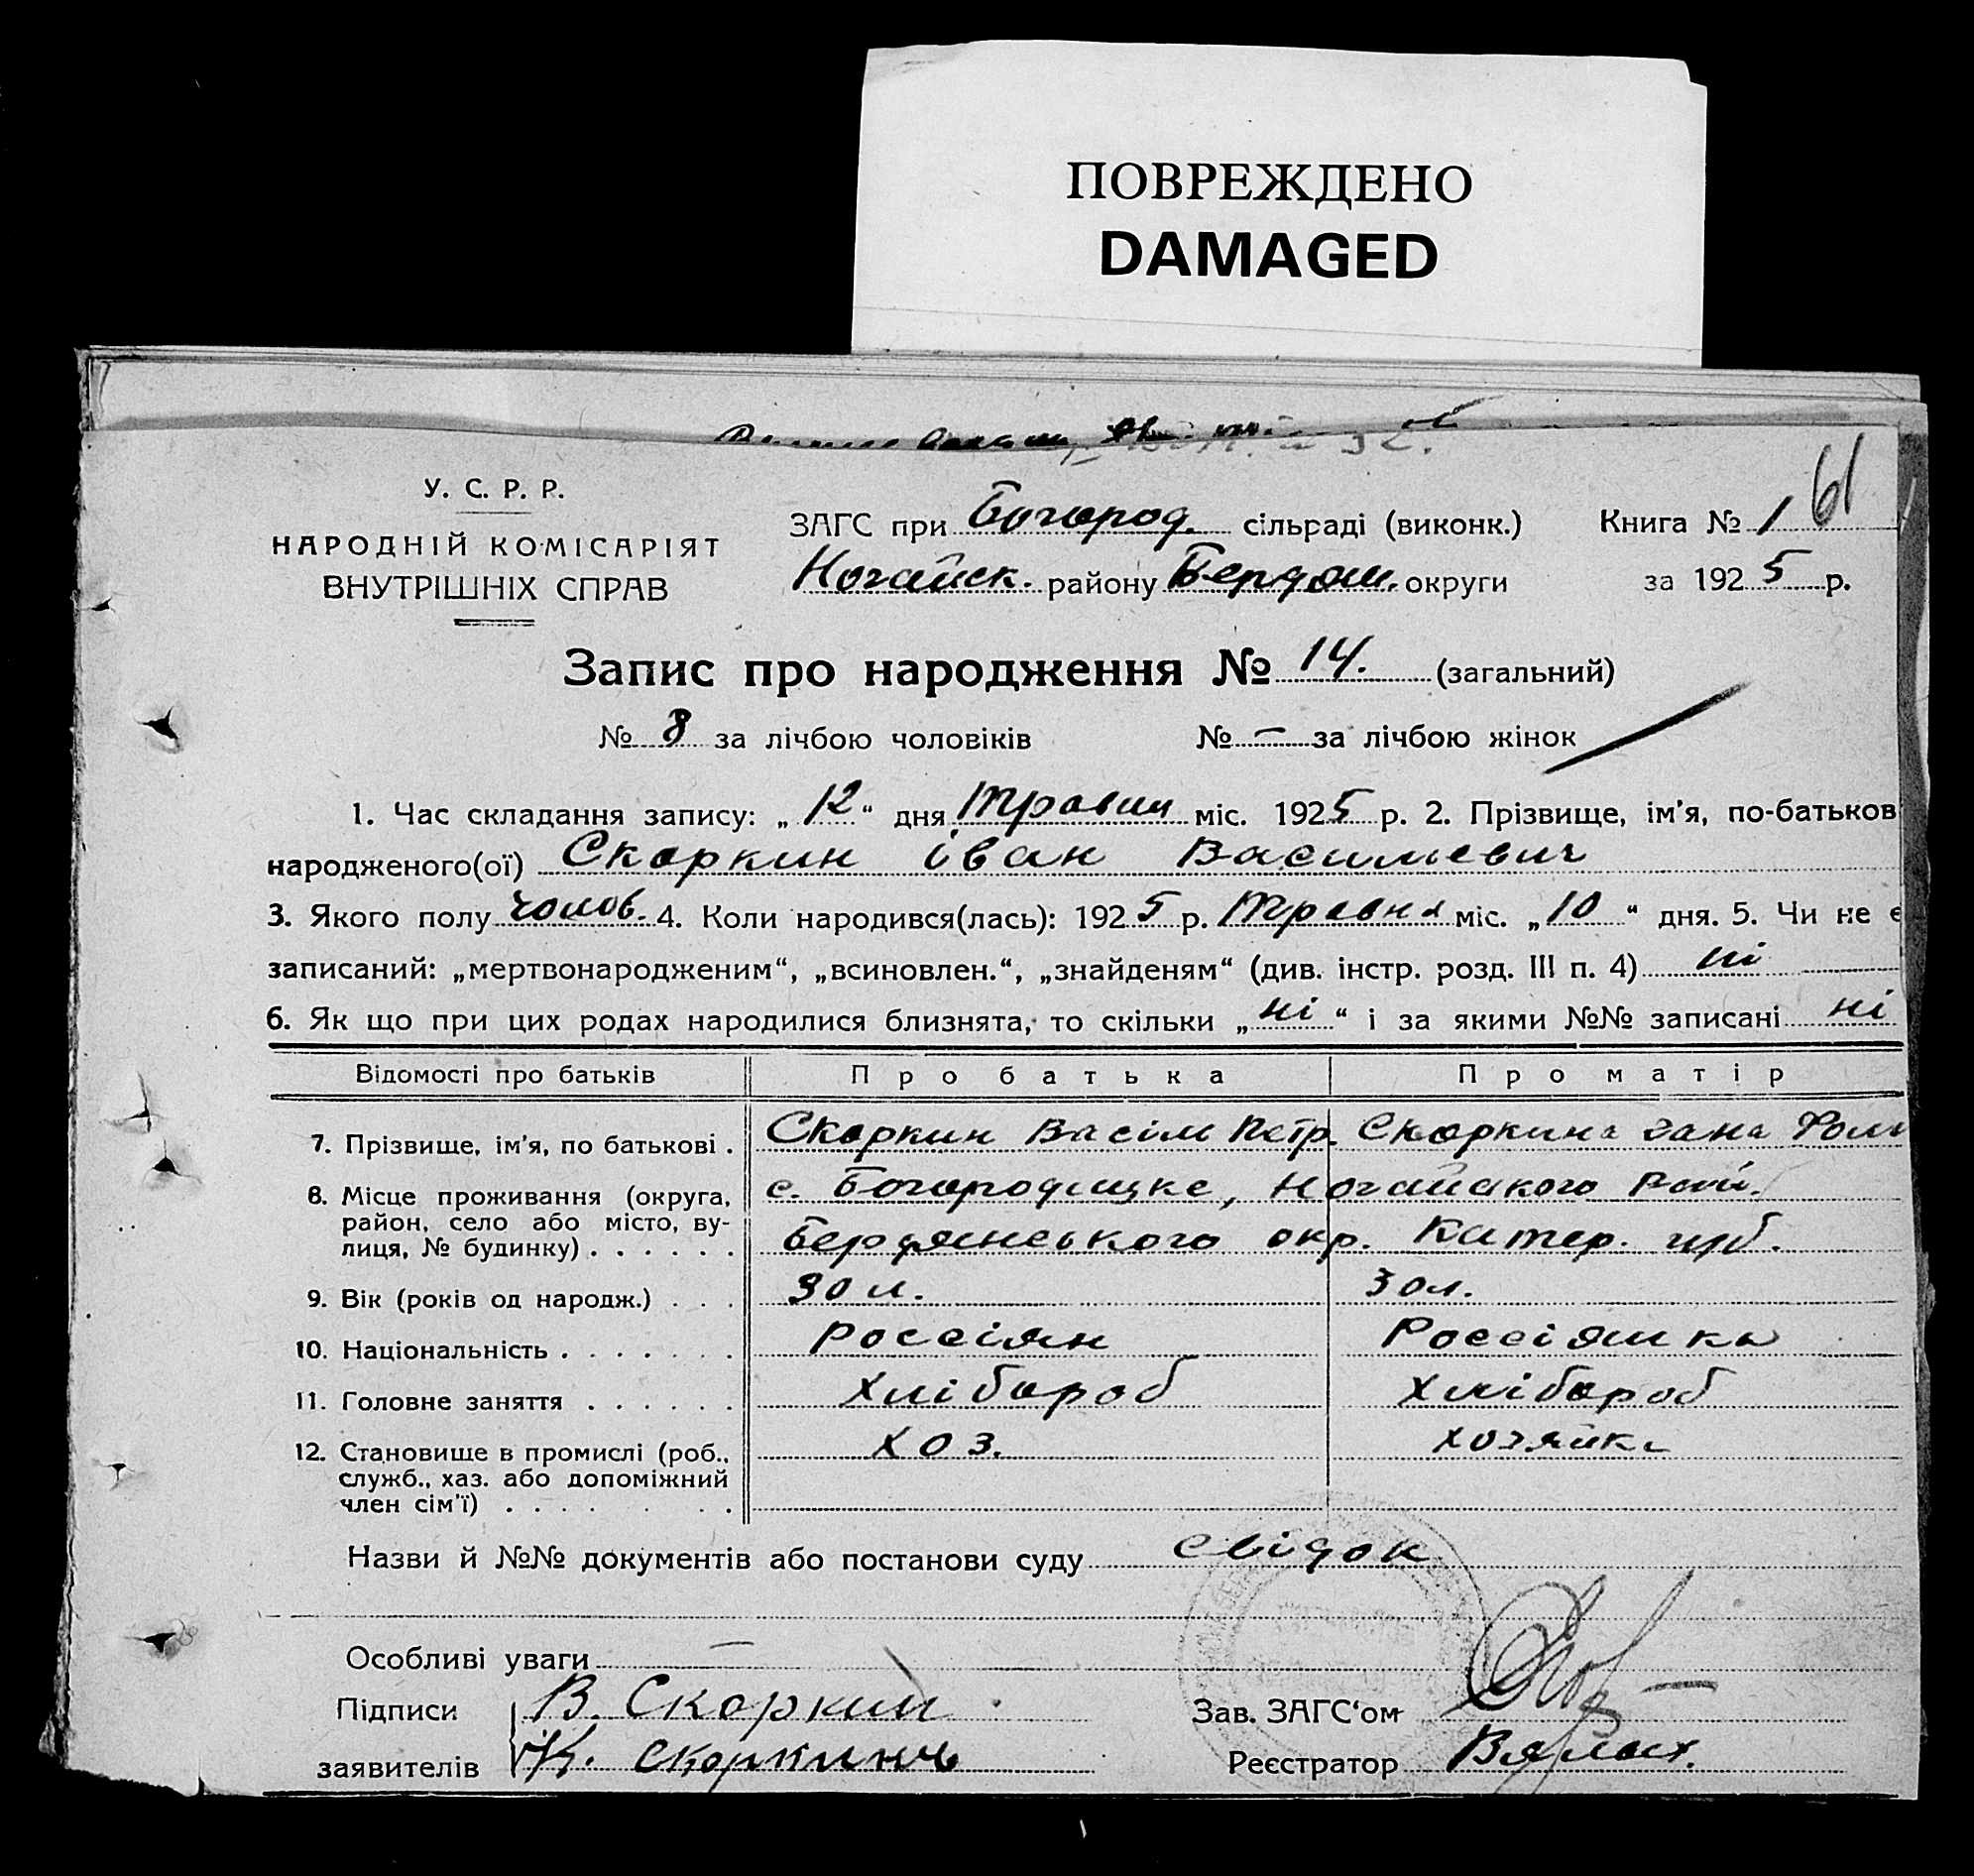 ПОВРЕЖДЕНО
DAMAGED
У. С. Р. Р.
НАРОДНІЙ КОМІСАРІЯТ
ВНУТРІШНІХ СПРАВ
ЗАГС при Богород. сільраді (виконк.)
Ногайск. району Бердян. округи
Книга № 1 61
за 1925 р.
Запис про народження № 14. (загальний)
№ 8 за лічбою чоловіків № — за лічбою жінок
1. Час складання запису: „12“ дня Травня міс. 1925 р. 2. Прізвище, ім'я, по-батьков
народженого(ої) Скоркин Іван Васильевич
3. Якого полу чолов. 4. Коли народився(лась): 1925 р. Травня міс. „10“ дня. 5. Чи не є
записаний: „мертвонародженим“, „всиновлен.“, „знайденям“ (див. інстр. розд. III п. 4) ні
6. Як що при цих родах народилися близнята, то скільки „ні“ і за якими №№ записані ні
Відомості про батьків Про батька Про матір
7. Прізвище, ім'я, по батькові . Скоркин Васіл Петр. Скоркина
8. Місце проживання (округа, с. Богородицке, Ногайского Рай.
район, село або місто, ву-
лиця, № будинку) . . . . . . Бердянського окр. Катер. губ.
9. Вік (років од народж.) . . . 30 л. 30 л.
10. Національність . . . . . . . Россіян Россіянка
11. Головне заняття . . . . . . Хлібороб Хлібороб
12. Становище в промислі (роб., Хоз. хозяйка
служб., хаз. або допоміжний
член сім'ї) . . . . . .
Назви й №№ документів або постанови суду свідок
Особливі уваги —
Підписи В. Скоркин
заявителів К. Скоркинь
Зав. ЗАГС‘ом
Реєстратор